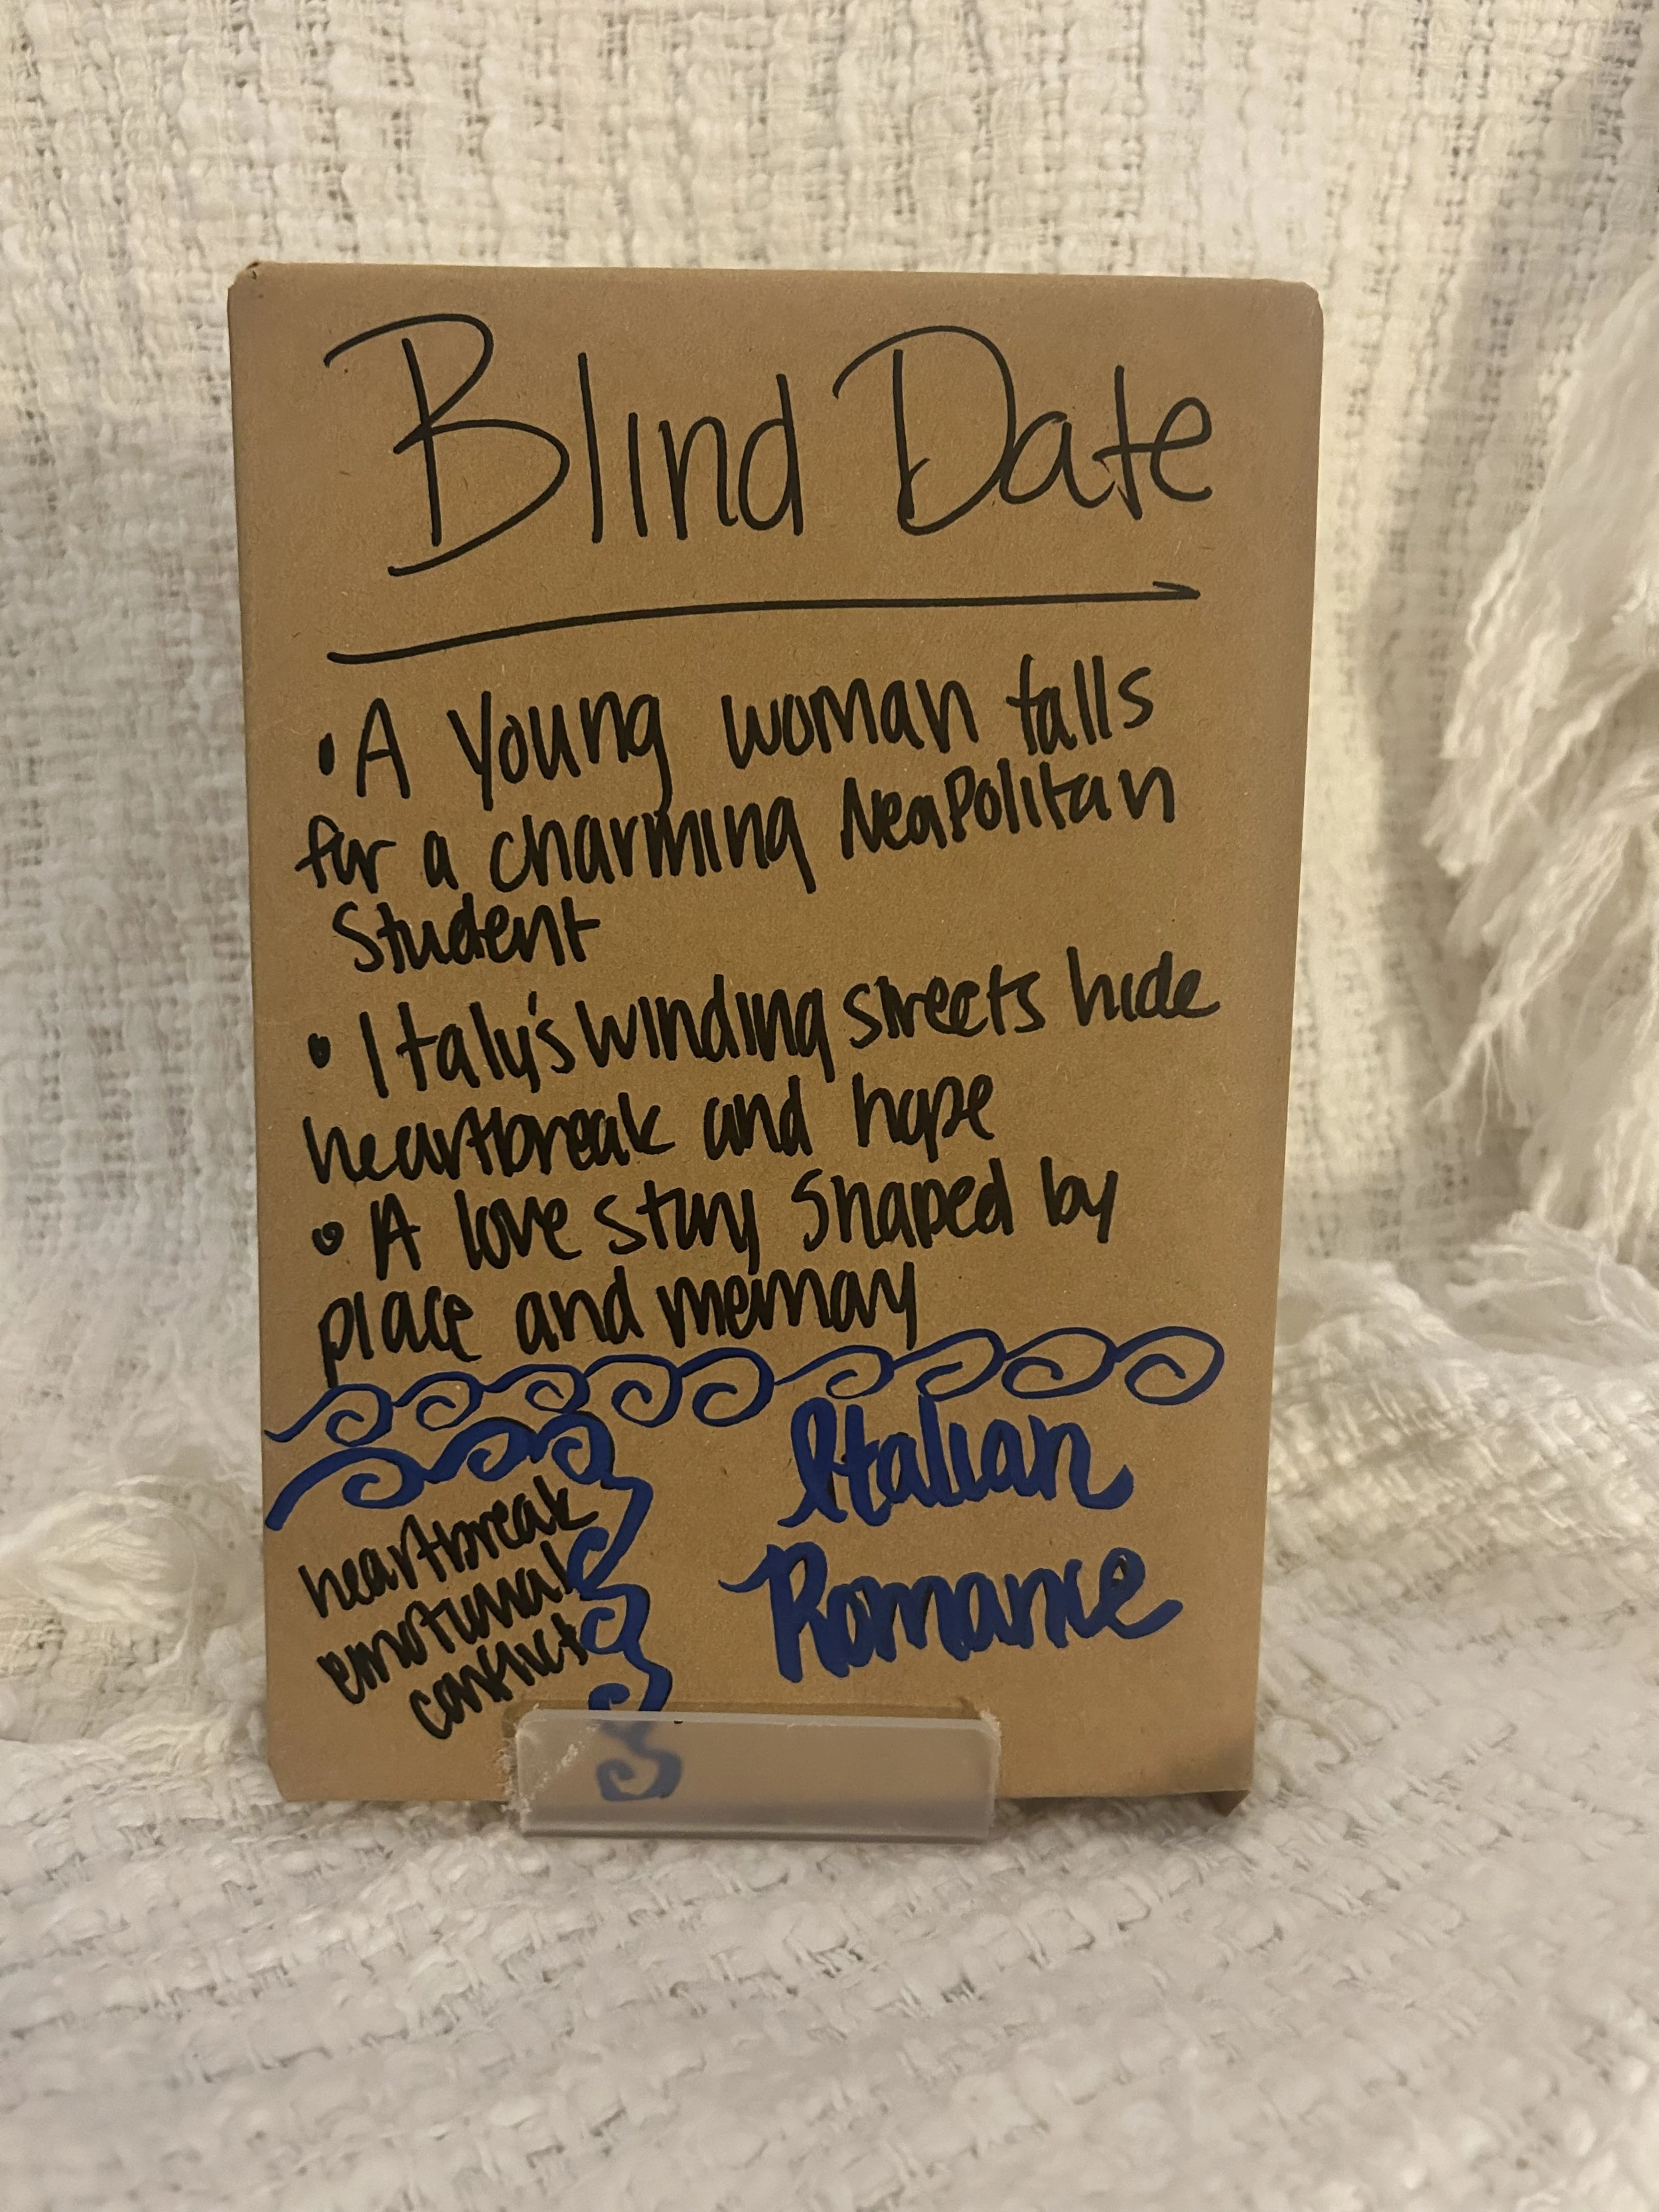 Blind Date
• A Young woman falls
for a charming Neapolitan
Student
• Italy's winding streets hide
heartbreak and hope
• A love story shaped by
place and memory
Italian
Romance
heartbreak
emotional
conflict